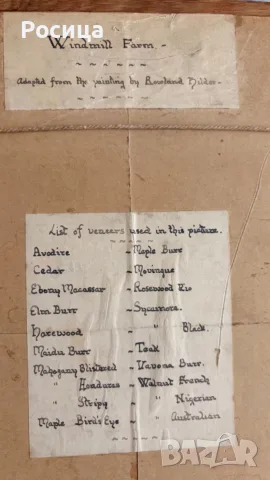 Росица
Windmill Farm -
Adapted from the painting by Rowland Hilder -
List of veneers used in this picture.
Avodire ~ Maple Burr
Cedar ~ Movingue
Ebony Macassar ~ Rosewood Rio
Elm Burr ~ Sycamore.
Harewood ~ " Black.
Maidu Burr ~ Teak
Mahogany Blistered ~ Vavona Burr.
" Honduras ~ Walnut French
" Stripy ~ " Nigerian
Maple Bird's Eye ~ " Australian
bazar.bg